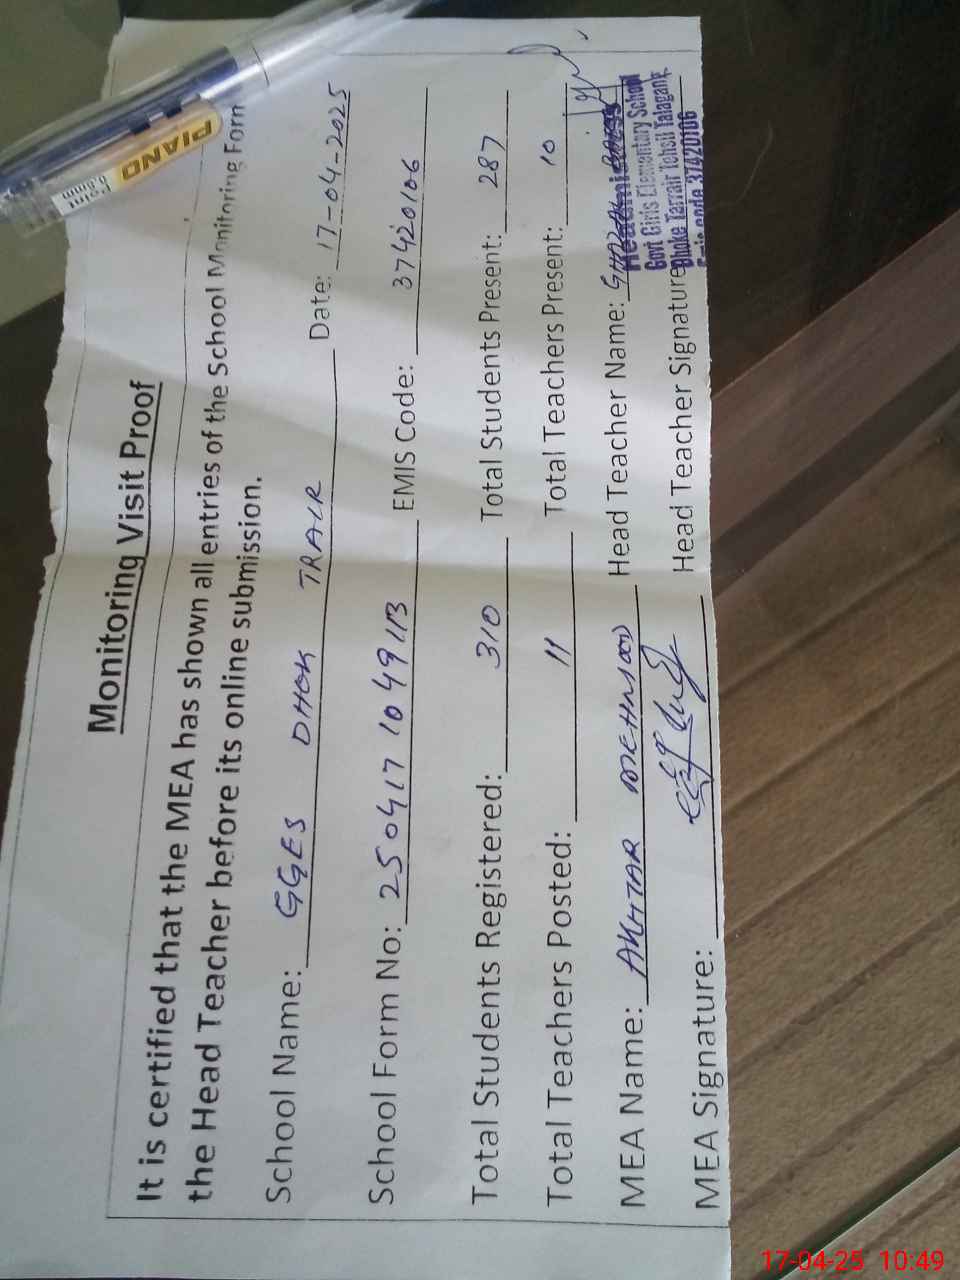 Monitoring Visit Proof
It is certified that the MEA has shown all entries of the School Monitoring Form
the Head Teacher before its online submission.
School Name: GGES DHOK TRAIR Date: 17-04-2025
School Form No: 250417 1049113 EMIS Code: 37420106
Total Students Registered: 310 Total Students Present: 287
Total Teachers Posted: 11 Total Teachers Present: 10
MEA Name: AKHTAR MEHMOOD Head Teacher Name:
MEA Signature: Head Teacher Signature
Headmistress
Govt Girls Elementary School
Dhoke Tarrair Tehsil Talagang
Emis code 37420106
PIANO
Point
0.8mm
17-04-25 10:49